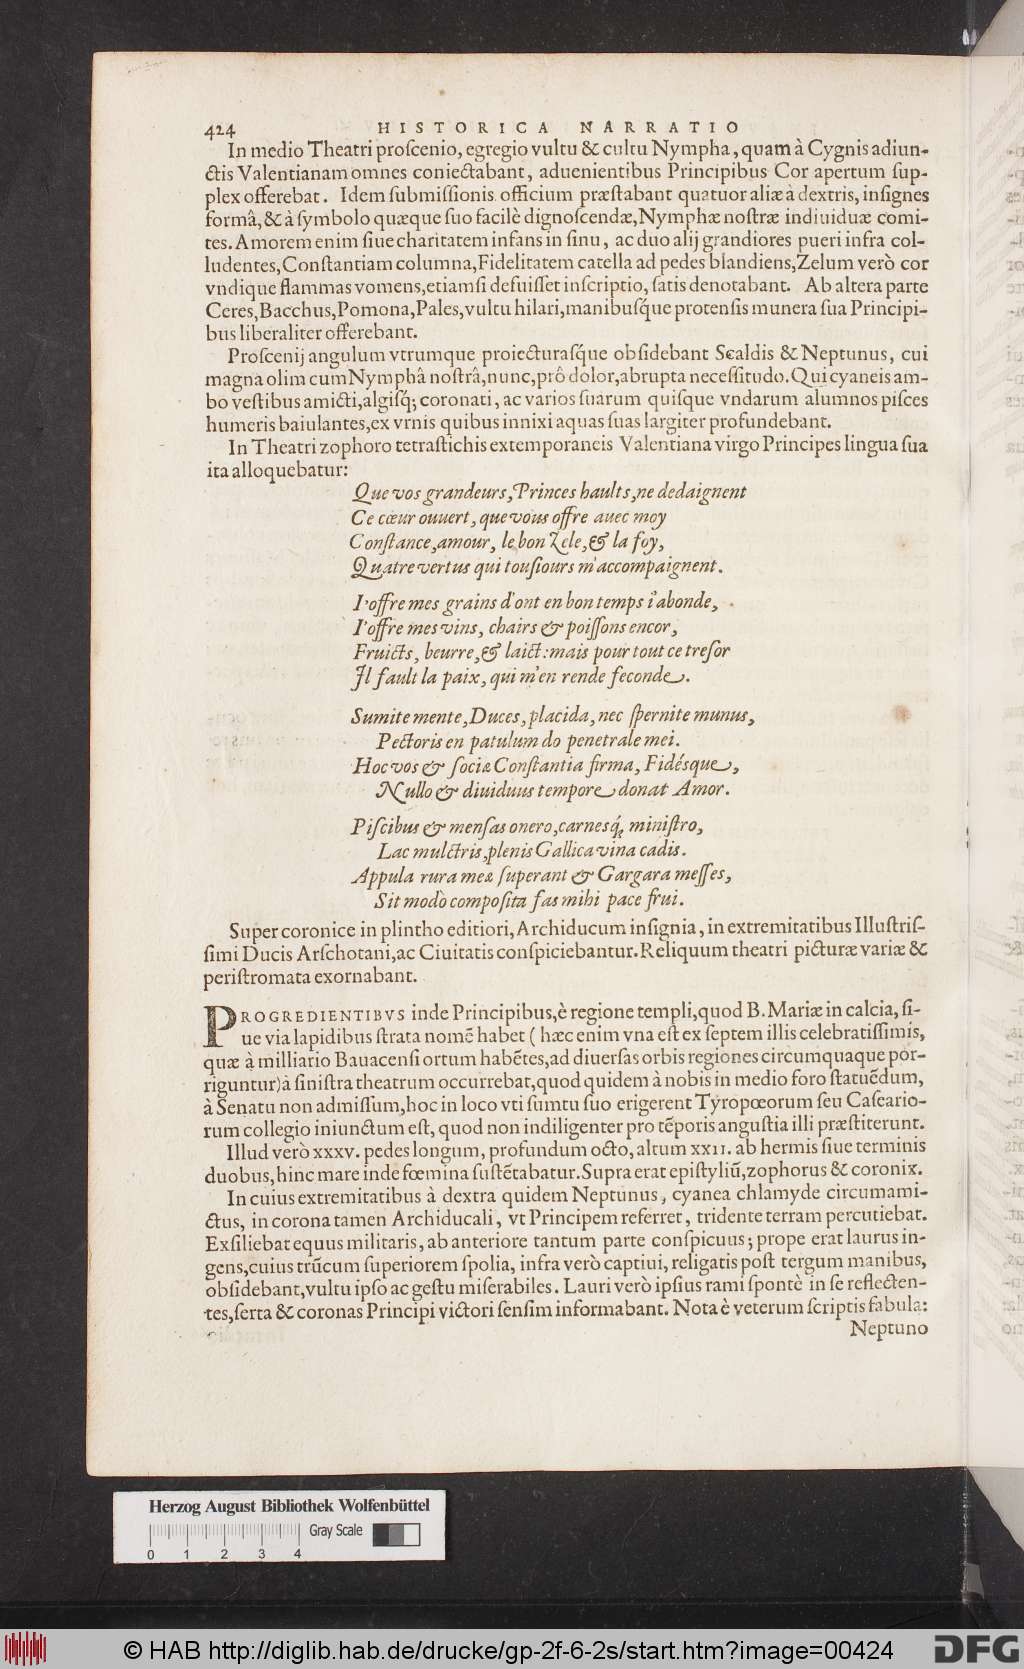 424 HISTORICA NARRATIO
In medio Theatri proſcenio, egregio vultu & cultu Nympha, quam à Cygnis adiun-
ctis Valentianam omnes coniectabant, aduenientibus Principibus Cor apertum ſup-
plex offerebat. Idem ſubmiſſionis officium præſtabant quatuor aliæ à dextris, inſignes
formâ, & à ſymbolo quæque ſuo facilè dignoſcendæ, Nymphæ noſtræ indiuiduæ comi-
tes. Amorem enim ſiue charitatem infans in ſinu, ac duo alij grandiores pueri infra col-
ludentes, Conſtantiam columna, Fidelitatem catella ad pedes blandiens, Zelum verò cor
vndique flammas vomens, etiamſi defuiſſet inſcriptio, ſatis denotabant. Ab altera parte
Ceres, Bacchus, Pomona, Pales, vultu hilari, manibuſq́ue protenſis munera ſua Principi-
bus liberaliter offerebant.
Proſcenij angulum vtrumque proiecturaſq́ue obſidebant Scaldis & Neptunus, cui
magna olim cum Nymphâ noſtrâ, nunc, prô dolor, abrupta neceſſitudo. Qui cyaneis am-
bo veſtibus amicti, algiſq́; coronati, ac varios ſuarum quiſque vndarum alumnos piſces
humeris baiulantes, ex vrnis quibus innixi aquas ſuas largiter profundebant.
In Theatri zophoro tetraſtichis extemporaneis Valentiana virgo Principes lingua ſua
ita alloquebatur:
Que vos grandeurs, Princes haults, ne dedaignent
Ce cœur ouuert, que vous offre auec moy
Conſtance, amour, le bon Zele, & la foy,
Quatre vertus qui touſiours m'accompaignent.
I'offre mes grains d'ont en bon temps i'abonde,
I'offre mes vins, chairs & poiſſons encor,
Fruicts, beurre, & laict: mais pour tout ce treſor
Il fault la paix, qui m'en rende feconde.
Sumite mente, Duces, placida, nec ſpernite munus,
Pectoris en patulum do penetrale mei.
Hoc vos & ſocia Conſtantia firma, Fidésque,
Nullo & diuiduus tempore donat Amor.
Piſcibus & menſas onero, carnesq́; miniſtro,
Lac mulctris, plenis Gallica vina cadis.
Appula rura mea ſuperant & Gargara meſſes,
Sit modò compoſita fas mihi pace frui.
Super coronice in plintho editiori, Archiducum inſignia, in extremitatibus Illuſtriſ-
ſimi Ducis Arſchotani, ac Ciuitatis conſpiciebantur. Reliquum theatri picturæ variæ &
periſtromata exornabant.
PROGREDIENTIBVS inde Principibus, è regione templi, quod B. Mariæ in calcia, ſi-
ue via lapidibus ſtrata nomē habet ( hæc enim vna eſt ex ſeptem illis celebratiſſimis,
quæ à milliario Bauacenſi ortum habētes, ad diuerſas orbis regiones circumquaque por-
riguntur) à ſiniſtra theatrum occurrebat, quod quidem à nobis in medio foro ſtatuēdum,
à Senatu non admiſſum, hoc in loco vti ſumtu ſuo erigerent Tyropœorum ſeu Caſeario-
rum collegio iniunctum eſt, quod non indiligenter pro tēporis anguſtia illi præſtiterunt.
Illud verò XXXV. pedes longum, profundum octo, altum XXII. ab hermis ſiue terminis
duobus, hinc mare inde fœmina ſuſtētabatur. Supra erat epiſtyliū, zophorus & coronix.
In cuius extremitatibus à dextra quidem Neptunus, cyanea chlamyde circumami-
ctus, in corona tamen Archiducali, vt Principem referret, tridente terram percutiebat.
Exſiliebat equus militaris, ab anteriore tantum parte conſpicuus; prope erat laurus in-
gens, cuius trūcum ſuperiorem ſpolia, infra verò captiui, religatis poſt tergum manibus,
obſidebant, vultu ipſo ac geſtu miſerabiles. Lauri verò ipſius rami ſpontè in ſe reflecten-
tes, ſerta & coronas Principi victori ſenſim informabant. Nota è veterum ſcriptis fabula:
Neptuno
Herzog August Bibliothek Wolfenbüttel
Gray Scale
0 1 2 3 4
© HAB http://diglib.hab.de/drucke/gp-2f-6-2s/start.htm?image=00424
DFG